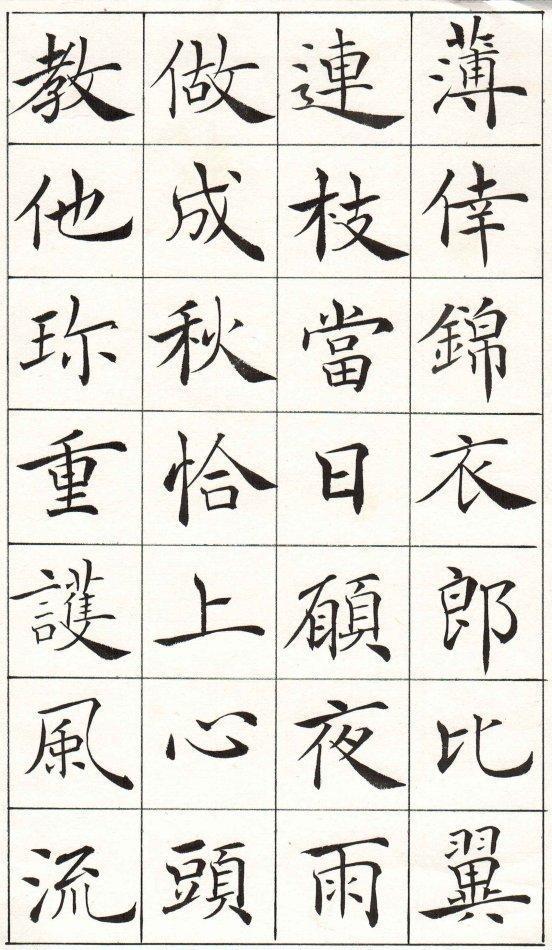 薄倖錦衣郎比翼
連枝當日願夜雨
做成秋恰上心頭
教他珎重護風流